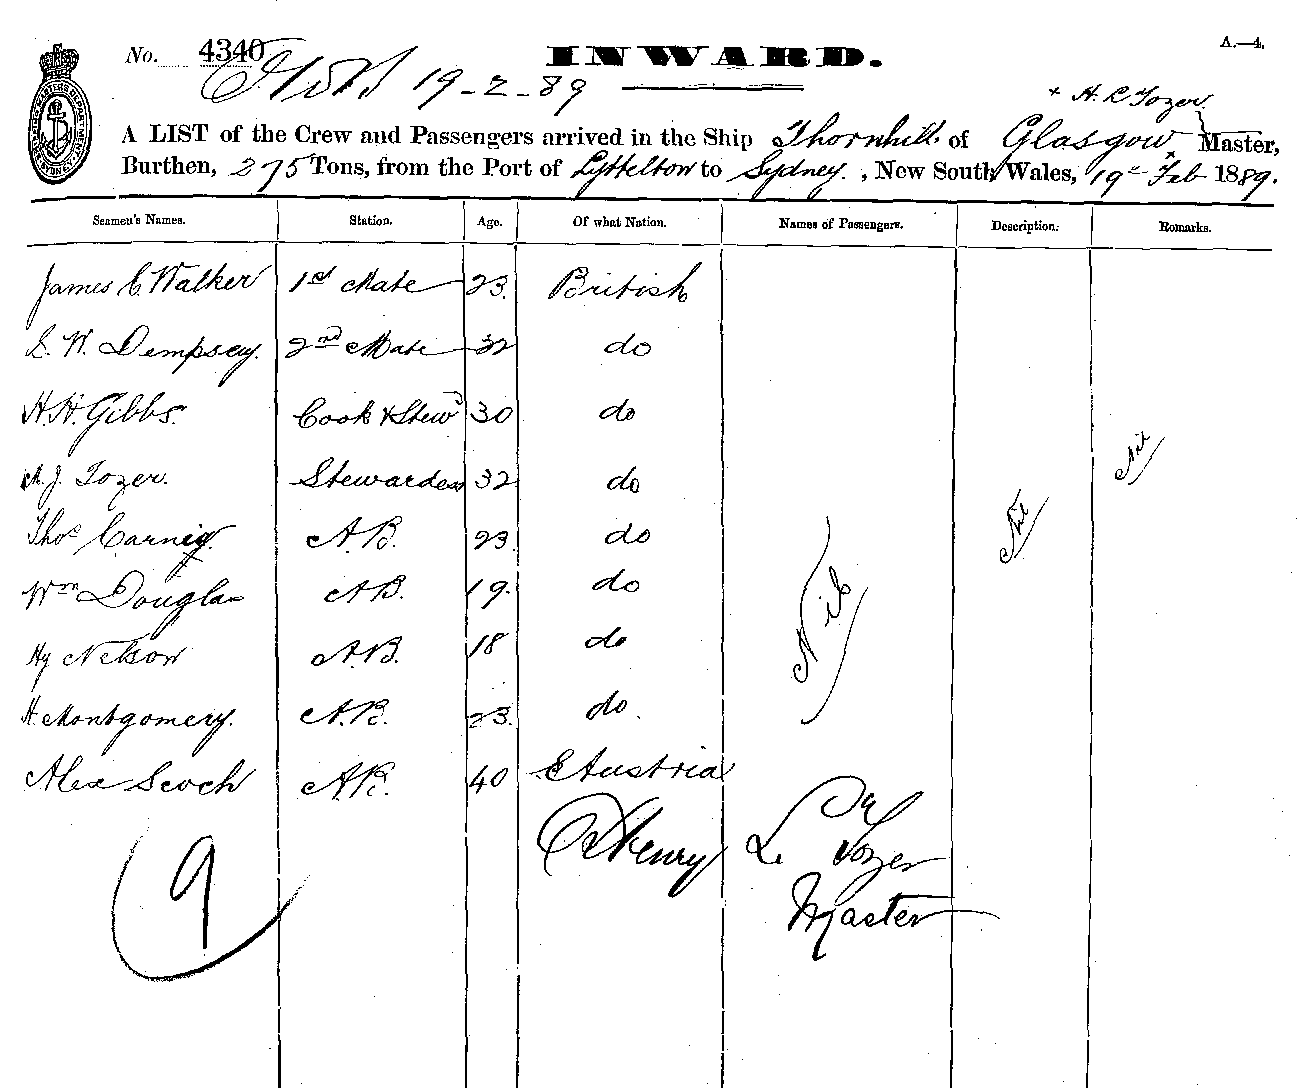 No. 4340 INWARD. A.—4.
19-2-89
+ H. L Tozer
A LIST of the Crew and Passengers arrived in the Ship Thornhill of Glasgow Master,
Burthen, 275 Tons, from the Port of Lyttelton to Sydney, New South Wales, 19th Feb 1889.
Seamen's Names. Station. Age. Of what Nation. Names of Passengers. Description. Remarks.
James C Walker 1st Mate 23 British
S. W. Dempsey. 2nd Mate 32 do
H. H. Gibbs. Cook & Stewd 30 do
M. J. Tozer. Stewardess 32 do
Thos A.B. 23 do
Wm Douglas A.B. 19 do
Hy Nelson A.B. 18 do
H. Montgomery. A.B. 23 do
Alex Scoch A.B. 40 Austria
Nil
Nil
Nil
9
Henry
Tozer
Master